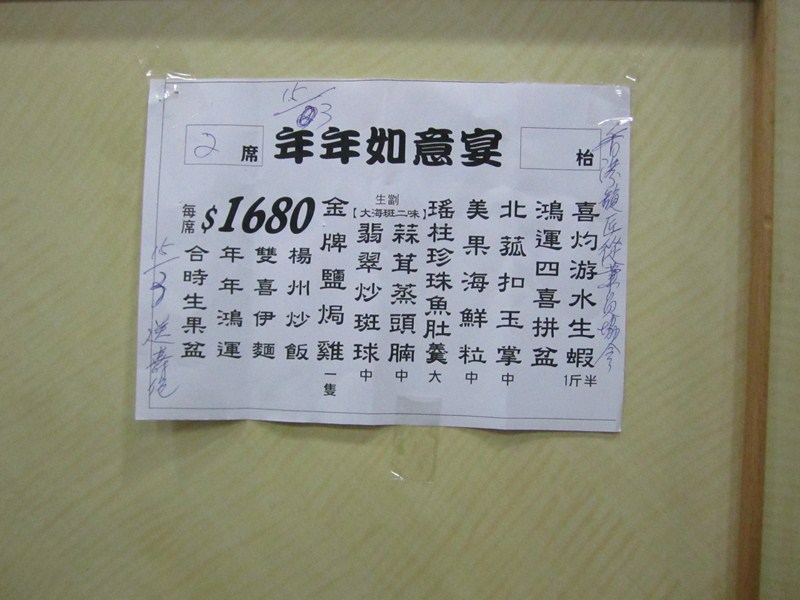 15/03
2席
年年如意宴
枱
喜灼游水生蝦1斤半
鴻運四喜拼盆
北菰扣玉掌中
美果海鮮粒中
瑤柱珍珠魚肚羹大
生劏
【大海斑二味】
蒜茸蒸頭腩中
翡翠炒斑球中
金牌鹽焗雞一隻
每席$1680
楊州炒飯
雙喜伊麵
年年鴻運
合時生果盆
15/3